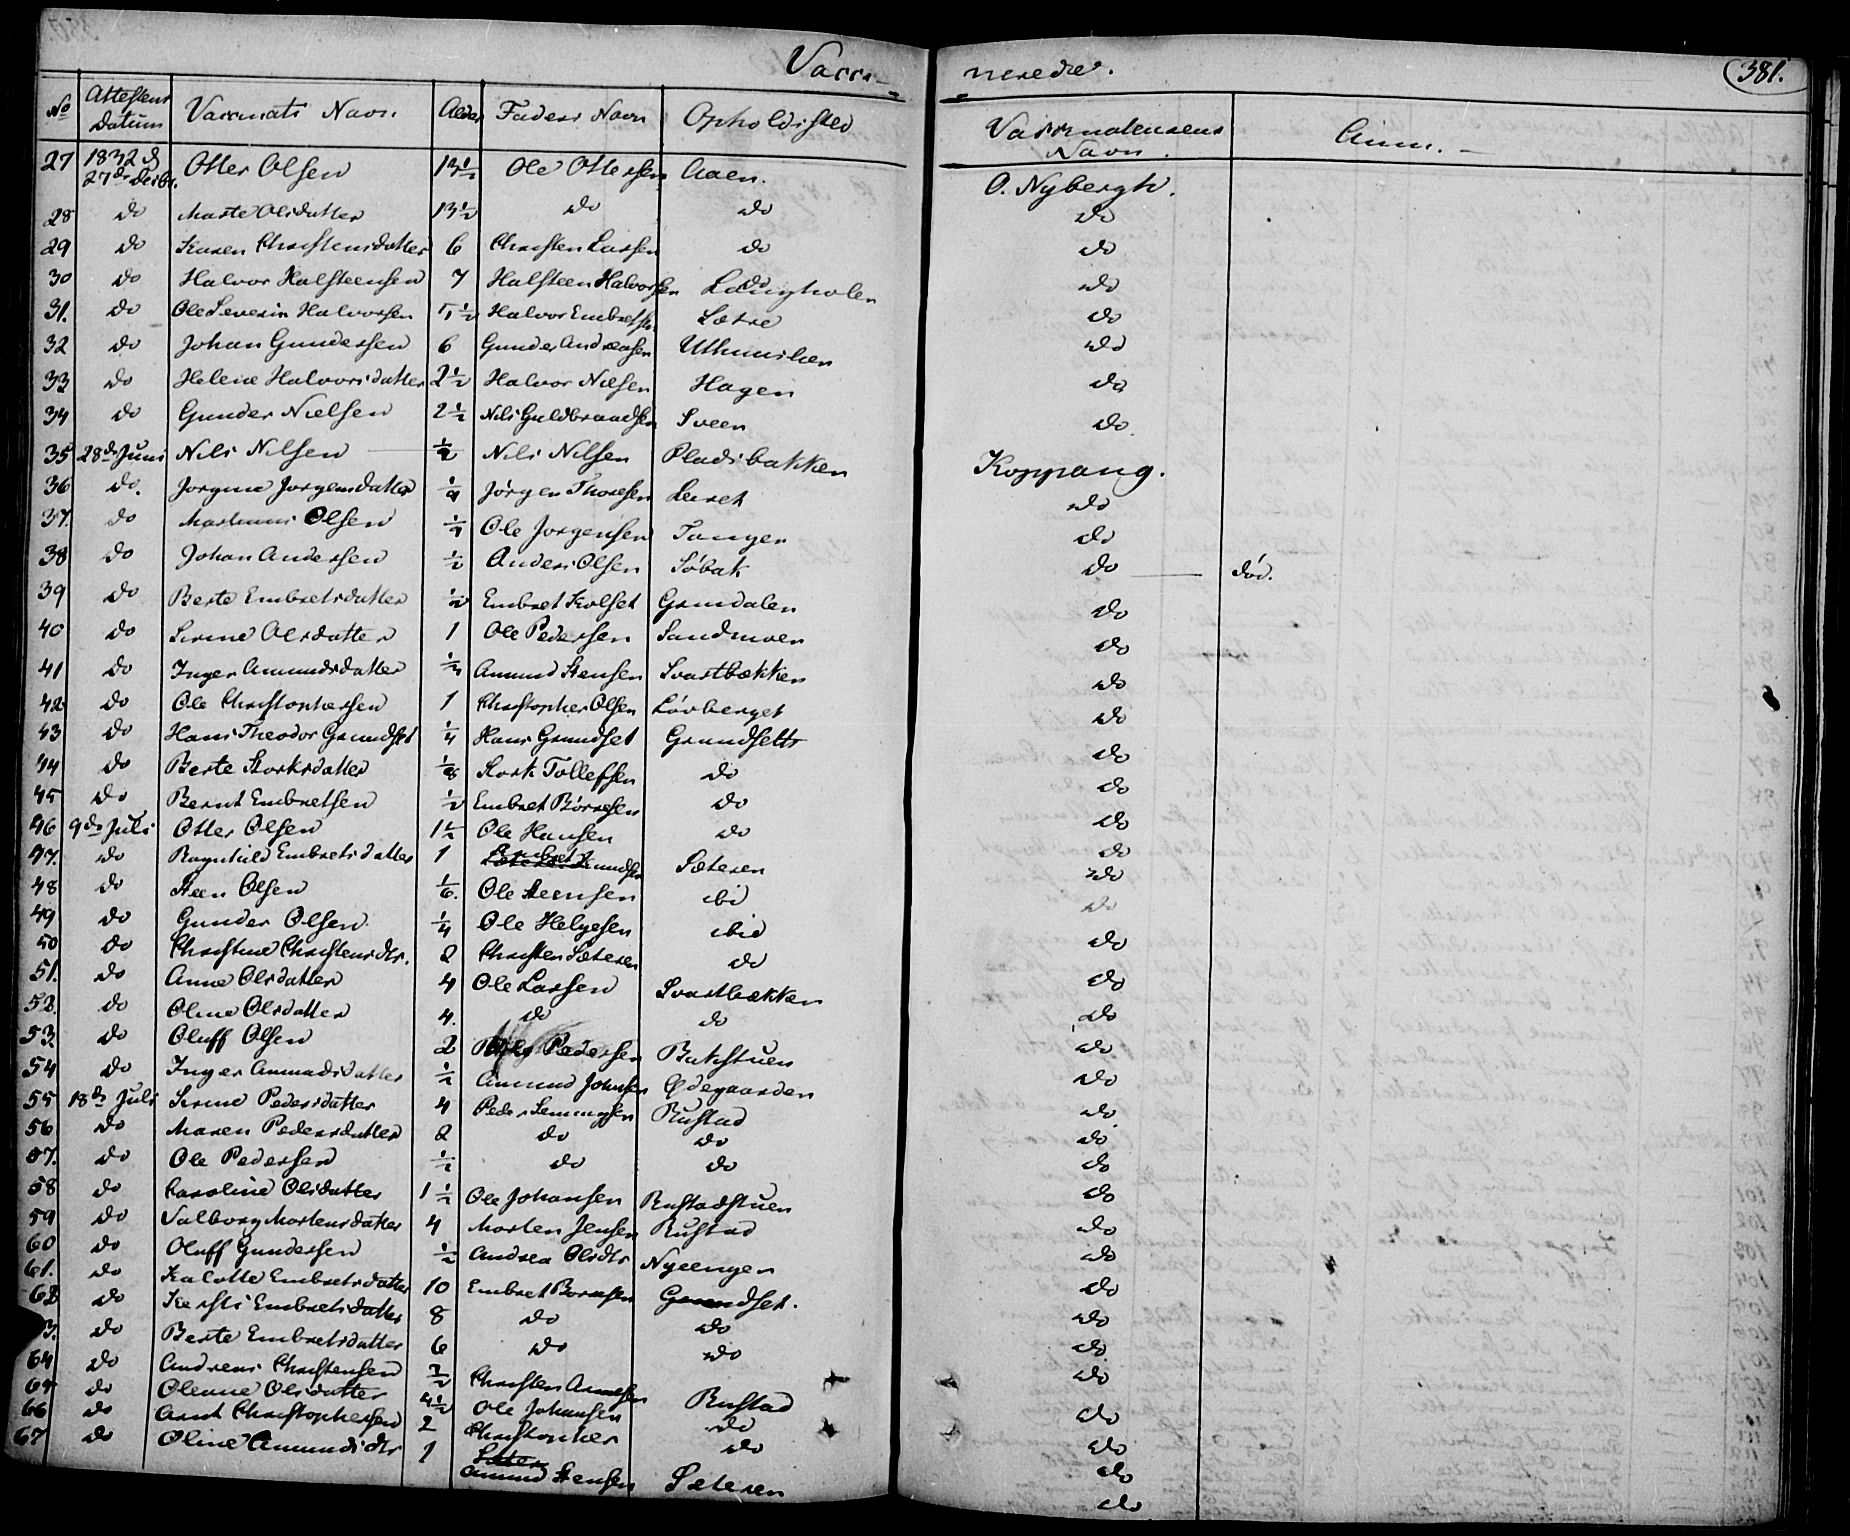 Vacci- nerede. 381.
No Attestens Datum Vaccinats Navn Alder Faders Navn Opholdsted Vaccinateurens Navn. Anm.
27 1832 d 27de Decbr. Otter Olsen 13½ Ole Ottersen Aaen. O. Nybergh.
28 do Marte Olsdatter 13½ do do do
29 do Karen Christensdatter 6 Christen Larsen do do
30 do Halvor Halsteensen 7 Halsteen Halvorsen do
31. do Ole Severin Halvorsen 5½ Halvor Embretsen Lætre do
32 do Johan Gundersen 6 Gunder Andreasen do
33 do Helene Halvorsdatter 2½ Halvor Nilsen Hagen do
34 do Gunder Nielsen 2½ Nils Guldbrandsen Sveen do
35 28de Juni Nils Nilsen ½ Nils Nilsen Pladsbakken Koppang.
36 do. Jørgine Jørgensdatter ¼ Jørgen Thoresen Leiret do
37. do Olsen ¼ Ole Jørgensen Tangen do
38 do Johan Andersen ½ Anders Olsen Søbak do død.
39 do Berte Embretsdatter ½ Embret Kolset Grundalen do
40 do Serine Olsdatter 1 Ole Pedersen Sandmoen do
41 do Inger Amundsdatter ½ Amund Stensen Svartbækken do
42 do Ole Christophersen 1 Christopher Olsen Løvberget do
43 do Hans Theodor Grundset ¼ Hans Grundset Grundsett do
44 do Berte Storksdatter ⅛ Stork Tollefsen do do
45 do Bernt Embretsen ½ Embret Børresen do do
46 9de Juli Otter Olsen 1½ Ole Hansen do do
47. do Ragnhild Embretsdatter 1 Embret Amundsen Sæteren do
48 do Steen Olsen 1/6. Ole Steensen ibid do
49 do Gunder Olsen ¼ Ole Helgesen ibid do
50 do Christine Christensdtr. 2 Christen Sæteren do do
51. do Anne Olsdatter 4 Ole Larsen Svartbækken do
52. do Oline Olsdatter 4. do do do
53. do Oluff Olsen 2 Pedersen Bakstuen do
54 do Inger Amundsdatter ½ Amund Johnsen Ødegaarden do
55 18de Juli Serine Pedersdatter 4 Peder Semmingsen Rustad do
56 do Maren Pedersdatter 2 do do do
57. do Ole Pedersen ½ do do do
58 do Caroline Olsdatter 1½ Ole Johansen Rustadstuen do
59 do Valborg Mortensdatter 4 Morten Jensen Rustad do
60 do Oluff Gundersen ½ Andrea Olsdtr Nyeengen do
61. do Embretsdatter 10 Embret Børresen Grundset. do
62 do Kersti Embretsdatter 8 do do do
3. do Berte Embretsdatter 6 do do do
64 do Andreas Christensen ½ Christen Arnesen Rustad do
65 do Oleane Olsdatter 4½ Ole Johansen do do
66 do Arnt Christophersen 2 Christopher do do
67 do Oline Amundsdtr 1 Amund Stensen Sæteren do